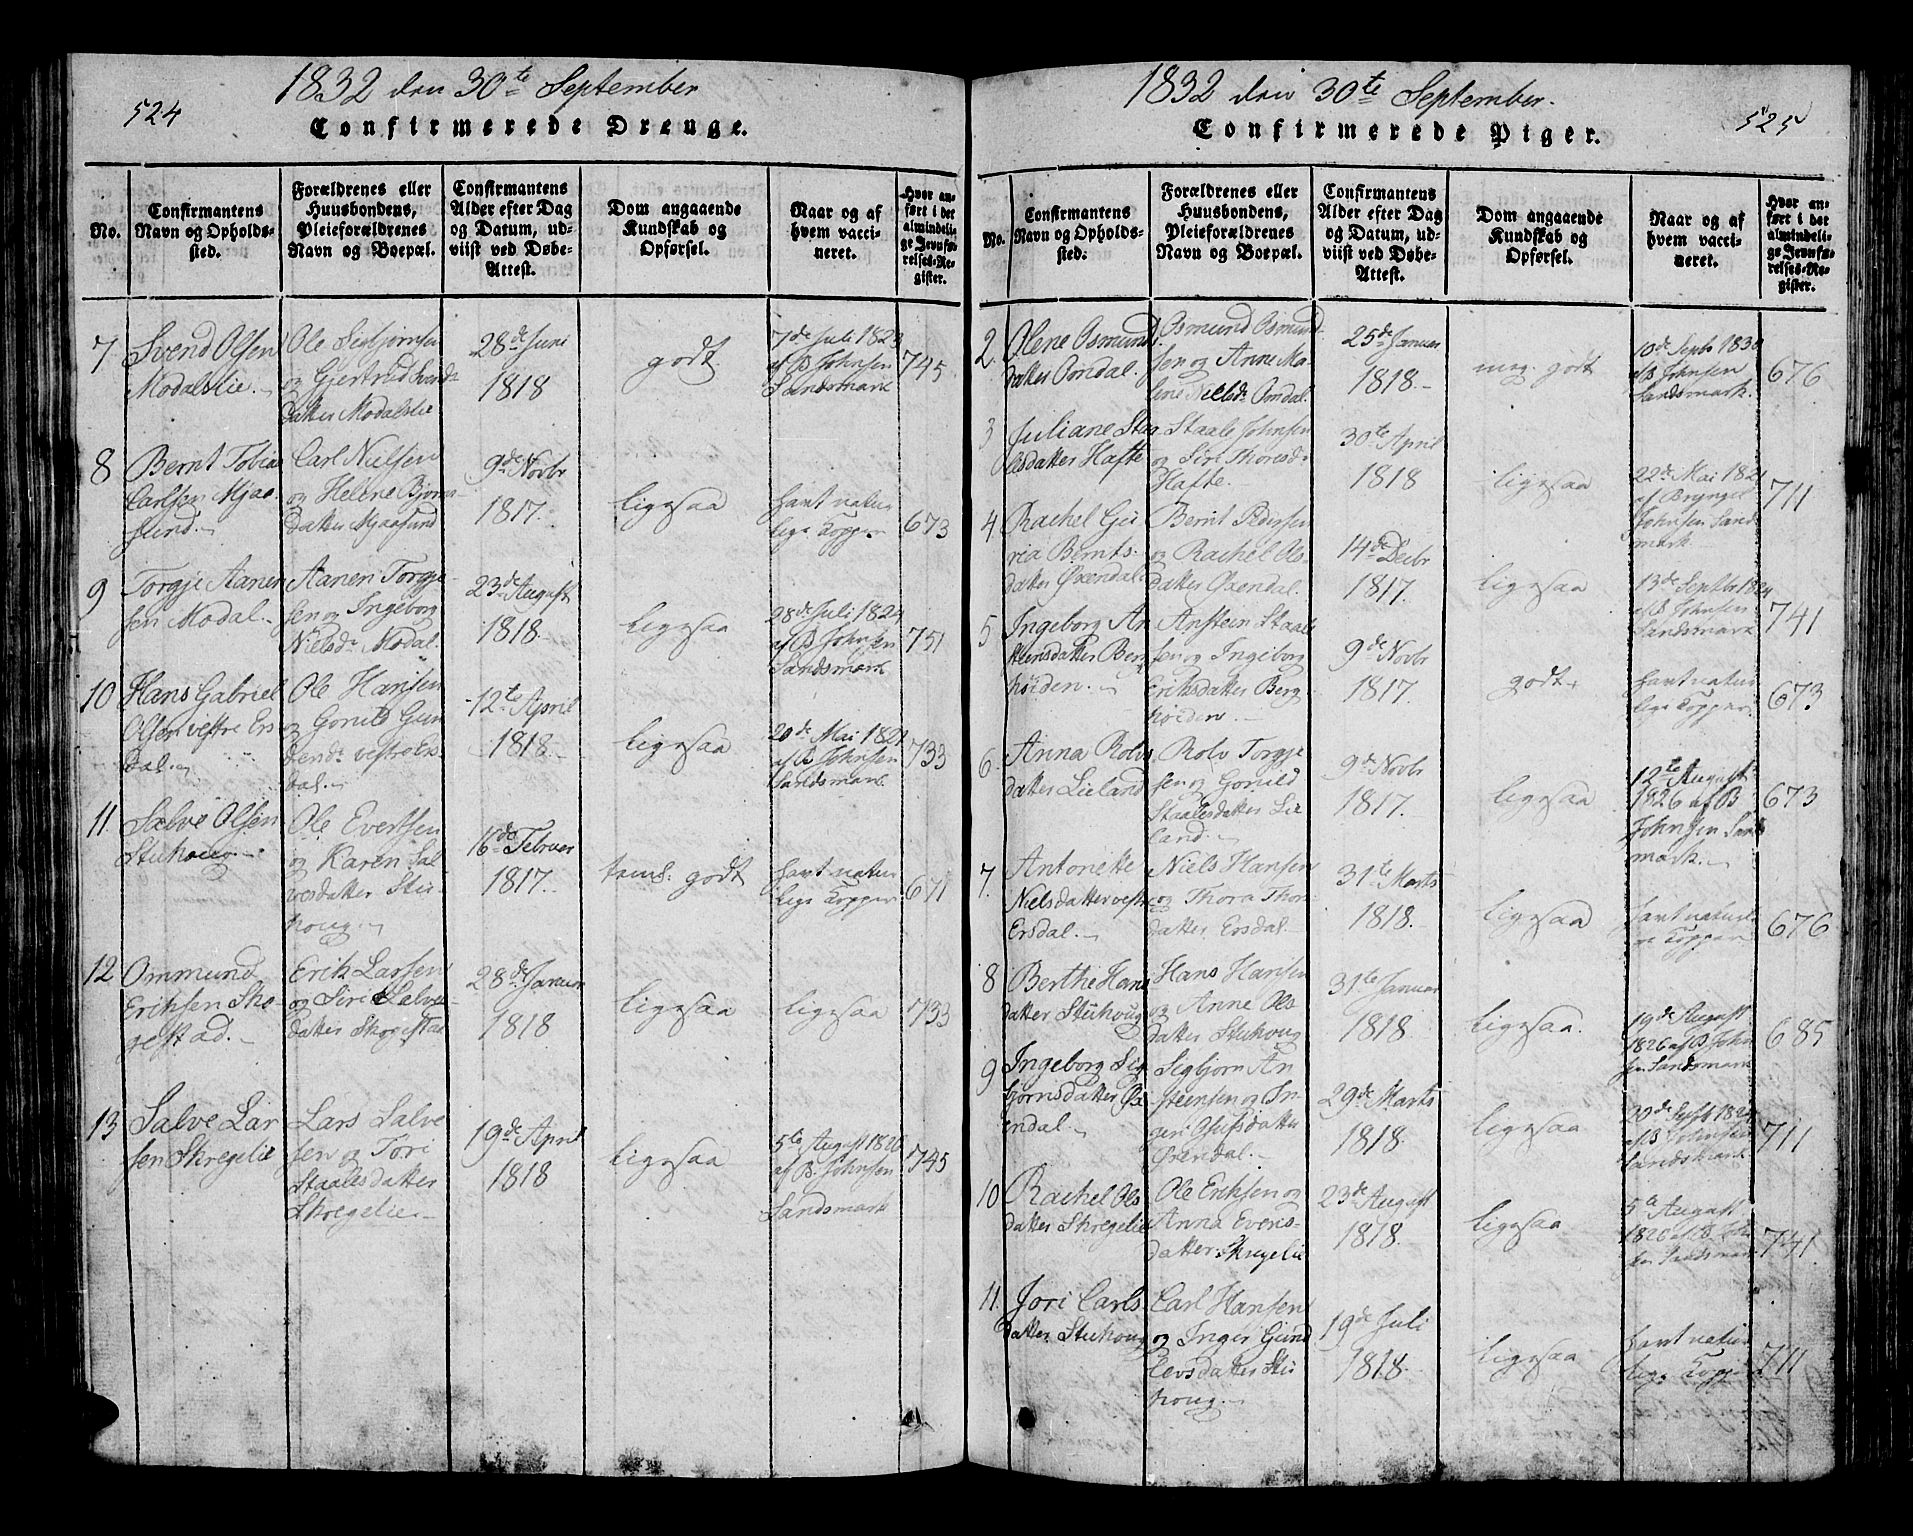 524
1832 den 30te September
Confirmerede Drenge.
No.
Confirmantens
Navn og Opholds-
sted.
Forældrenes eller
Huusbondens,
Pleieforældrenes
Navn og Boepæl.
Confirmantens
Alder efter Dag
og Datum, ud-
viist ved Døbe-
Attest.
Dom angaaende
Kundskab og
Opførsel.
Naar og af
hvem vacci-
neret.
Hvor an-
ført i det
almindeli-
ge Jevnfø-
relses-Re-
gister.
7
Svend Olsen
Modalslie.
Ole Sigbjørnsen
og Gjertrud Svends
datter Modalslie
28de Juni
1818
godt.
7de Juli 1823
af B Johnsen
Sandsmark
745
8
Bernt Tobias
Carlsen Mjaa-
sund.
Carl Nielsen
og Helene Bjørns
datter Mjaasund
9de Novbr
1817.
ligesaa
havt natur
lige Kopper
673
9
Torgje Aanen
sen Modal.
Aanen Torgje-
sen og Ingeborg
Nielsdr Modal.
23de August
1818.
ligesaa
28de Juli 1824
af B Johnsen
Sandsmark
751
10
Hans Gabriel
Olsen vestre Ers
dal.
Ole Hansen
og Gonild Gun
dersdr vestre Ers-
dal.
12te April
1818.
ligesaa
20de Mai 1821
af B Johnsen
Sandsmark
733
11.
Salve Olsen
Stuhoug.
Ole Evertsen
og Karen Sal
vesdatter Stu
houg.
16de Februar
1817.
teml. godt
havt natur
lige Kopper
671
12
Ommund
Eriksen Skre
gestad.
Erik Larsen
og Siri Salves-
datter Skregestad
28de Januar
1818
ligesaa
ligesaa
733
13
Salve Lar
sen Skregelie
Lars Salve
sen og Tori
Staalesdatter
Skregelie
19de April
1818
ligesaa
5te August 1826
af B. Johnsen
Sandsmark
745
1832 den 30te September.
525
Confirmerede Piger.
No.
Confirmantens
Navn og Opholds-
sted.
Forældrenes eller
Huusbondens,
Pleieforældrenes
Navn og Boepæl.
Confirmantens
Alder efter Dag
og Datum, ud-
viist ved Døbe-
Attest.
Dom angaaende
Kundskab og
Opførsel.
Naar og af
hvem vacci-
neret.
Hvor an-
ført i det
almindeli-
ge Jevnfø-
relses-Re-
gister.
2.
Olene Osmunds
datter Omdal.
Osmund Osmund-
sen og Anne Ma
lene Nielsdr Omdal.
25de Januar
1818.
meg. godt
10de Septb 1830
af B Johnsen
Sandsmark.
676
3
Juliane Staa-
lesdatter Hafte
Staale Johnsen
og Siri Thoresdr
Hafte.
30te April
1818
ligesaa
22de Mai 1821
af Bryngel
Johnsen Sands
mark.
711
4
Rachel Gu
ria Bernts-
datter Øxendal
Bernt Pedersen
og Rachel Ols-
datter Øxendal.
14de Decbr
1817.
ligesaa
13de Septbr 1824
af B Johnsen
Sandsmark
741
5
Ingeborg An
steensdatter Berg
høiden.
Ansteen Staale
sen og Ingeborg
Eriksdatter Berg
høiden.
9de Novbr
1817.
godt
havt natur
lige Kopper.
673
6.
Anna Rolvs
datter Lieland
Rolv Torgje
sen og Gonild
Staalesdatter Lie
land.
9de Novbr
1817.
ligesaa
12te August
1826 af B
Johnsen Sands
mark.
673
7.
Antonette
Nielsdatter vestre
Ersdal.
Niels Hansen
og Thora Thors
datter Ersdal.
31te Marts
1818.
ligesaa
havt naturli
ge Kopper
676
8
Berthe Hans
datter Stuhoug
Hans Hansen
og Anne Ols
datter Stuhoug
31te Januar
1818
ligesaa.
19de August
1826 af B John
sen Sandsmark
685
9
Ingeborg Sig
bjørnsdatter Øx
endal.
Sigbjørn An
steensen og In-
geri Gjusdatter
Øxendal.
29de Marts
1818.
ligesaa
22de Septb 1824
af B Johnsen
Sandsmark.
711
10
Rachel Ols
datter Skregelie
Ole Eriksen og
Anna Evens-
datter Skregelie
23de August
1818.
ligesaa
5te August
1826 af B John
sen Sandsmark
741
11.
Jori Carls
datter Stuhoug
Carl Hansen
og Inger Gund
levsdatter Stu
houg.
19de Juli
1818.
ligesaa
havt natur
lige Kopper
711